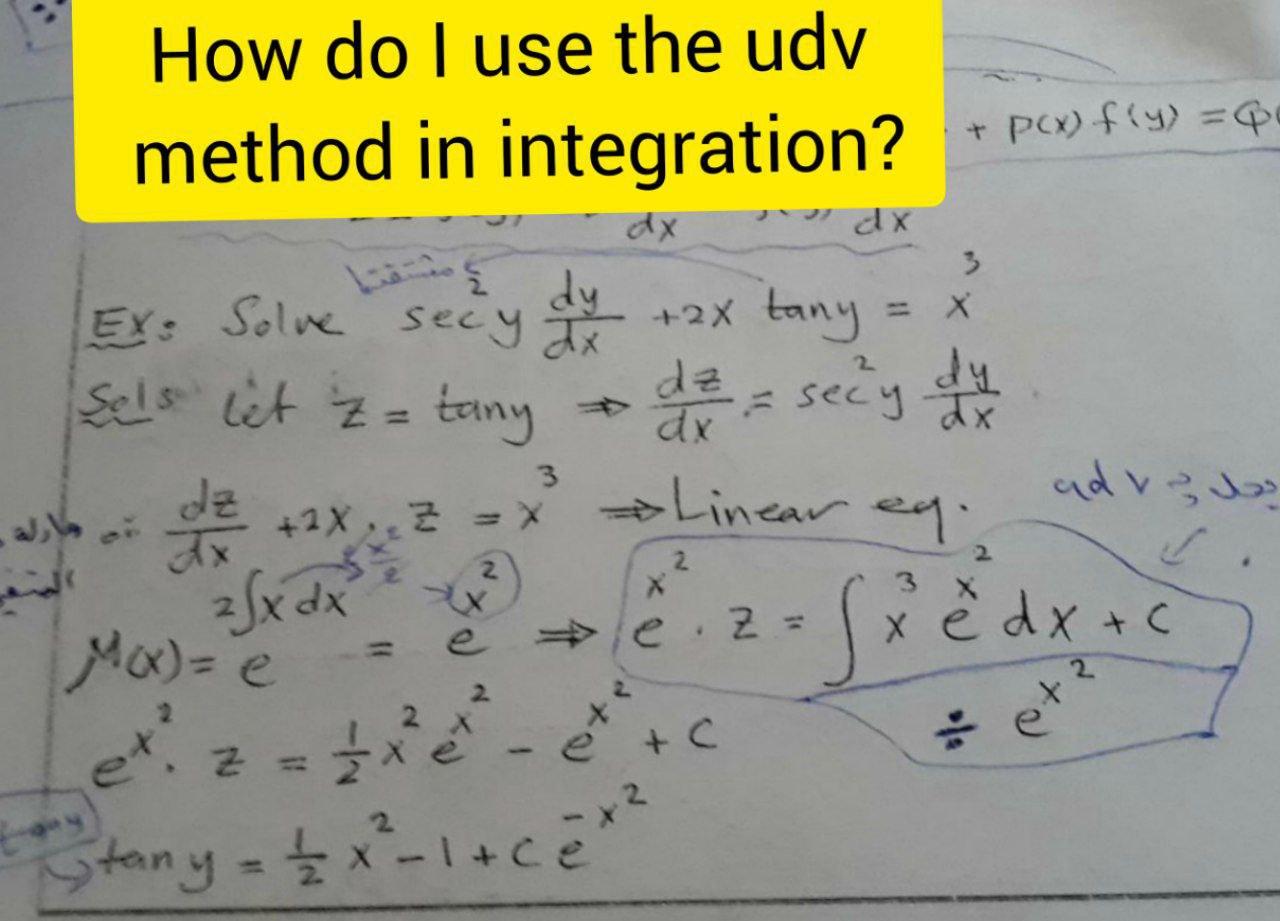 How do I use the udv
method in integration?
+ p(x) f(y) = Q(
dx dx
Ex: Solve sec²y dy/dx + 2x tany = x³
Sol: let z = tany ⇒ dz/dx = sec²y dy/dx
∴ dz/dx + 2x . z = x³ ⇒ Linear eq.
udv
μ(x) = e^(2∫x dx) = e^(x²) ⇒ e^(x²) . z = ∫ x³ e^(x²) dx + c
÷ e^(x²)
e^(x²) . z = 1/2 x² e^(x²) - e^(x²) + c
tany
tan y = 1/2 x² - 1 + c e^(-x²)